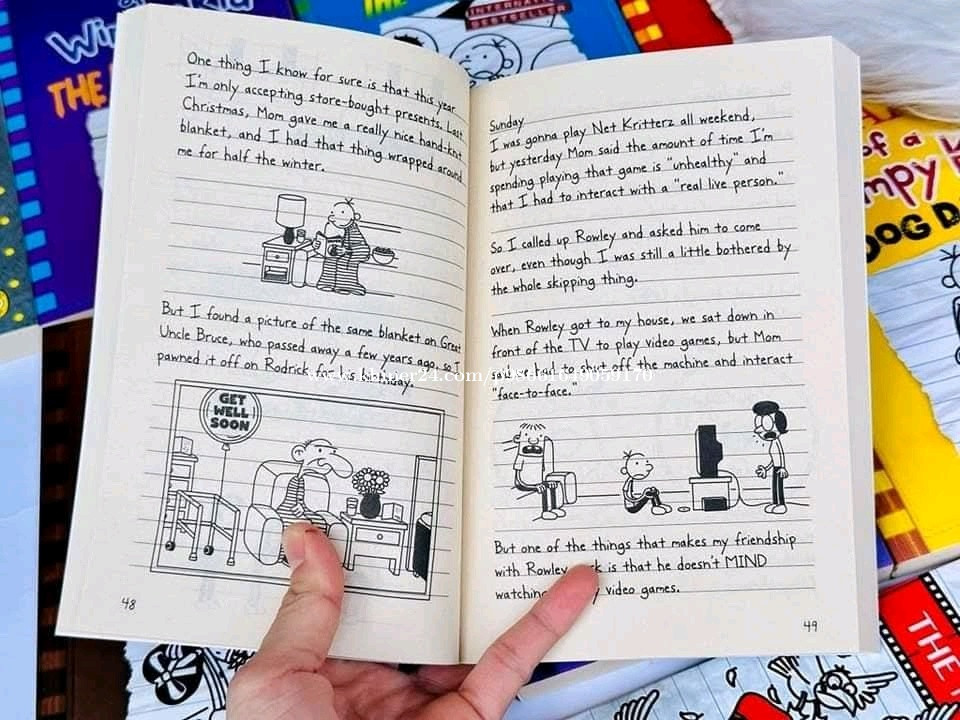 Wim
THE
INTERNATIONAL
BESTSELLER
One thing I know for sure is that this year
I'm only accepting store-bought presents. Last
Christmas, Mom gave me a really nice hand-knit
blanket, and I had that thing wrapped around
me for half the winter.
But I found a picture of the same blanket on Great
Uncle Bruce, who passed away a few years ago, so I
pawned it off on Rodrick for his birthday.
GET
WELL
SOON
48
Sunday
I was gonna play Net Kritterz all weekend,
but yesterday Mom said the amount of time I'm
spending playing that game is "unhealthy" and
that I had to interact with a "real live person."
So I called up Rowley and asked him to come
over, even though I was still a little bothered by
the whole skipping thing.
When Rowley got to my house, we sat down in
front of the TV to play video games, but Mom
said we had to turn off the machine and interact
"face-to-face."
But one of the things that makes my friendship
with Rowley is that he doesn't MIND
watching video games.
49
of a
mpy K
DOG D
THE